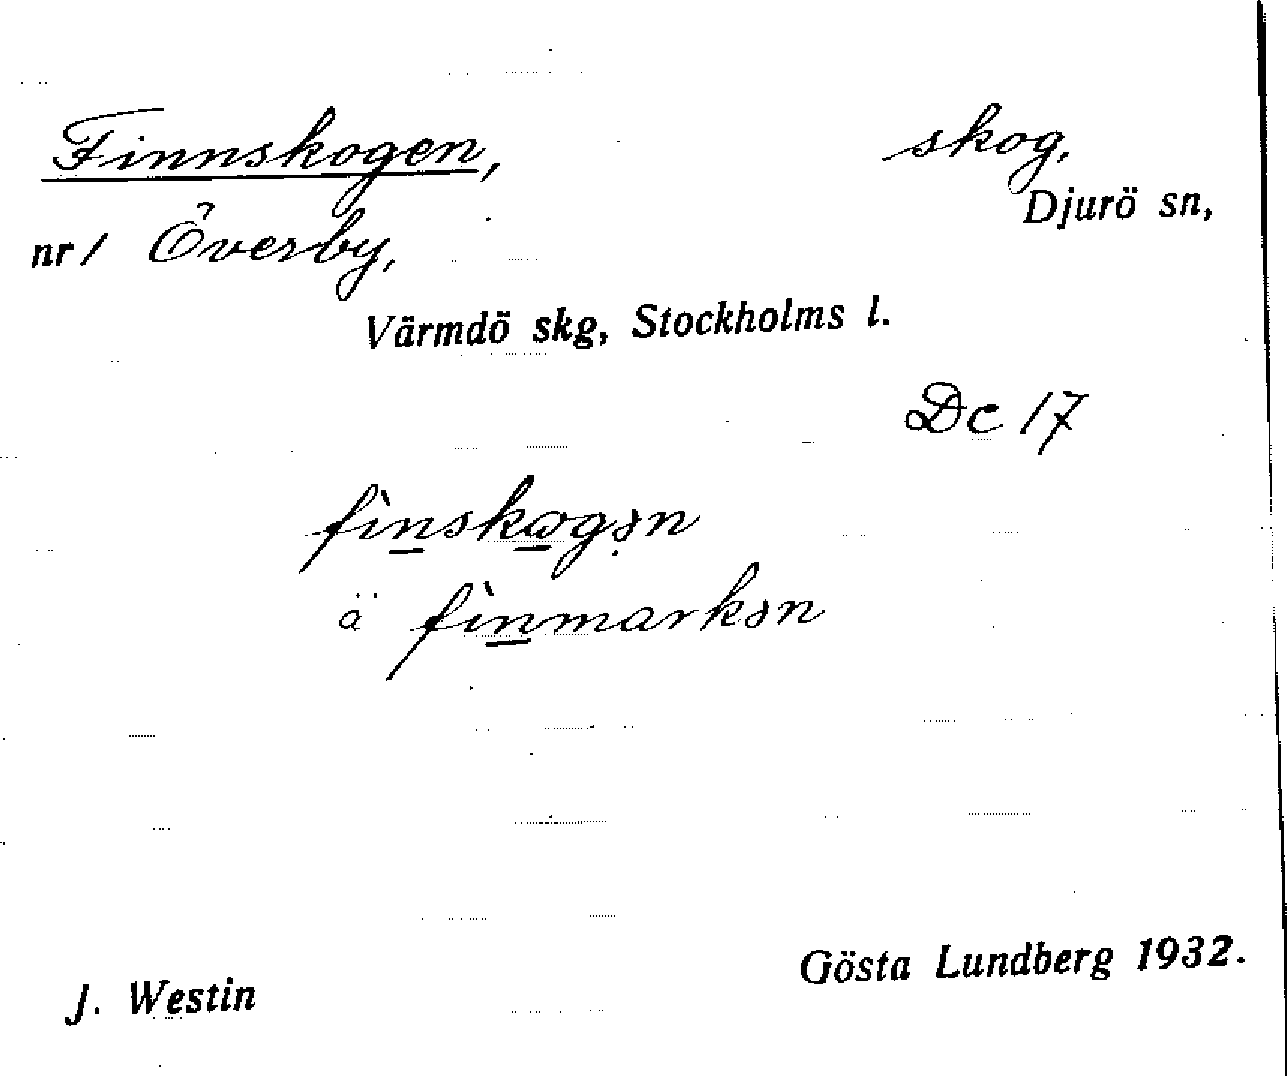 Finnskogen, skog,
Djurö sn,
nr 1 Överby,
Värmdö skg, Stockholms l.
Dc 17
fìnskogən
ä fìnmarkən
Gösta Lundberg 1932.
J. Westin